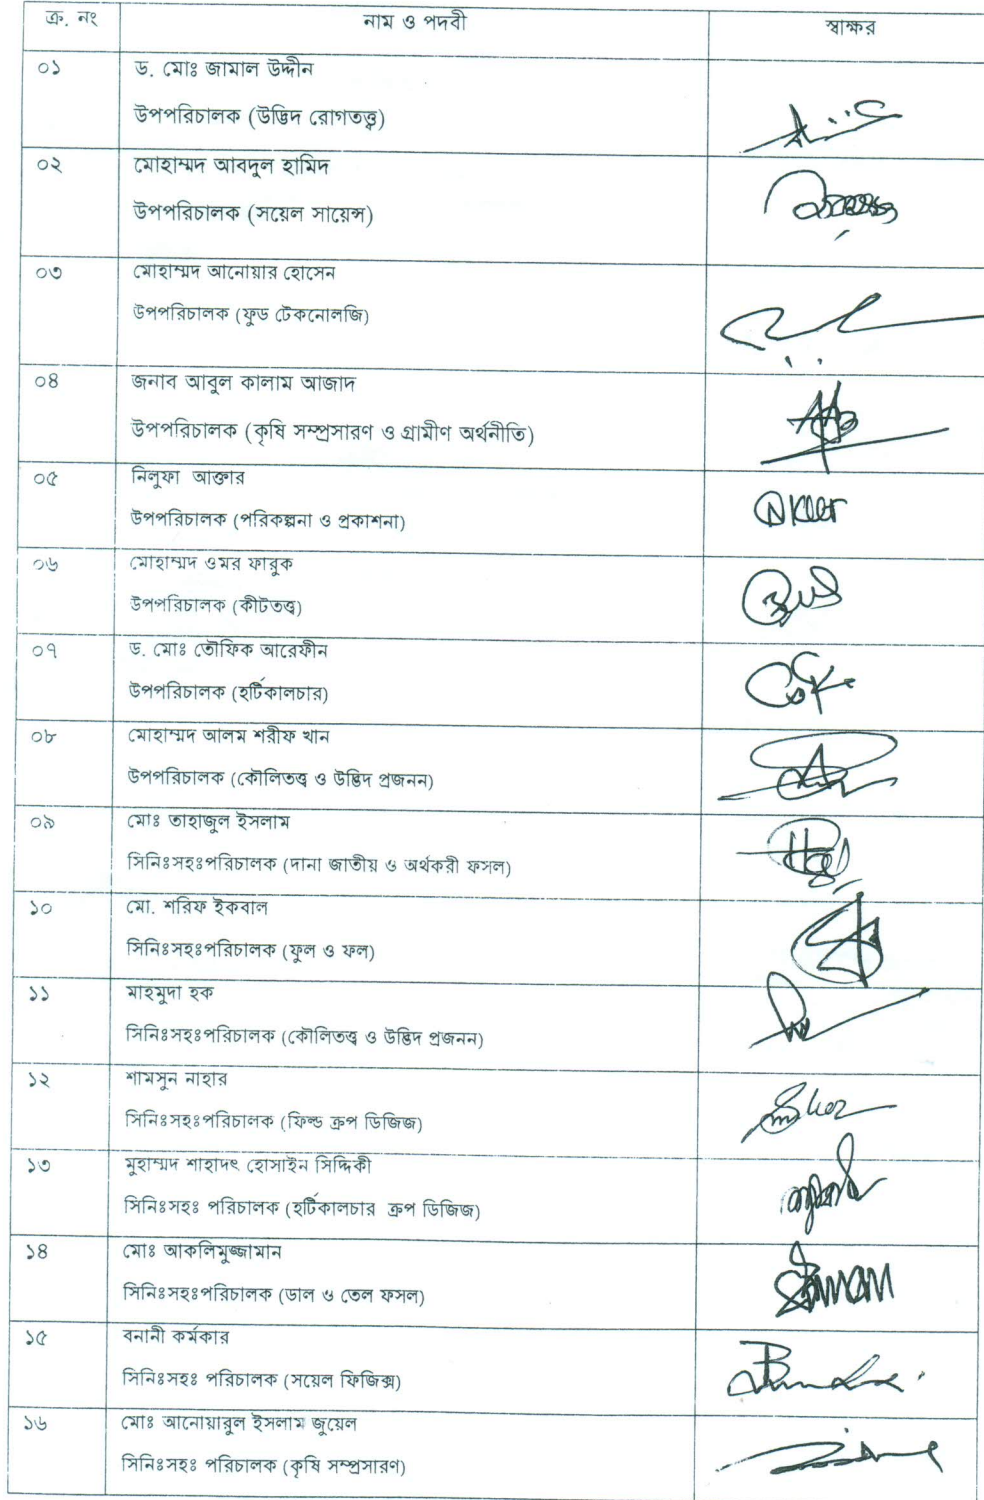 ক্র. নং নাম ও পদবী স্বাক্ষর
০১ ড. মোঃ জামাল উদ্দীন
উপপরিচালক (উদ্ভিদ রোগতত্ত্ব)
০২ মোহাম্মদ আবদুল হামিদ
উপপরিচালক (সয়েল সায়েন্স)
০৩ মোহাম্মদ আনোয়ার হোসেন
উপপরিচালক (ফুড টেকনোলজি)
০৪ জনাব আবুল কালাম আজাদ
উপপরিচালক (কৃষি সম্প্রসারণ ও গ্রামীণ অর্থনীতি)
০৫ নিলুফা আক্তার
উপপরিচালক (পরিকল্পনা ও প্রকাশনা)
০৬ মোহাম্মদ ওমর ফারুক
উপপরিচালক (কীটতত্ত্ব)
০৭ ড. মোঃ তৌফিক আরেফীন
উপপরিচালক (হর্টিকালচার)
০৮ মোহাম্মদ আলম শরীফ খান
উপপরিচালক (কৌলিতত্ত্ব ও উদ্ভিদ প্রজনন)
০৯ মোঃ তাহাজুল ইসলাম
সিনিঃসহঃপরিচালক (দানা জাতীয় ও অর্থকরী ফসল)
১০ মো. শরিফ ইকবাল
সিনিঃসহঃপরিচালক (ফুল ও ফল)
১১ মাহমুদা হক
সিনিঃসহঃপরিচালক (কৌলিতত্ত্ব ও উদ্ভিদ প্রজনন)
১২ শামসুন নাহার
সিনিঃসহঃপরিচালক (ফিল্ড ক্রপ ডিজিজ)
১৩ মুহাম্মদ শাহাদৎ হোসাইন সিদ্দিকী
সিনিঃসহঃ পরিচালক (হর্টিকালচার ক্রপ ডিজিজ)
১৪ মোঃ আকলিমুজ্জামান
সিনিঃসহঃপরিচালক (ডাল ও তেল ফসল)
১৫ বনানী কর্মকার
সিনিঃসহঃ পরিচালক (সয়েল ফিজিক্স)
১৬ মোঃ আনোয়ারুল ইসলাম জুয়েল
সিনিঃসহঃ পরিচালক (কৃষি সম্প্রসারণ)